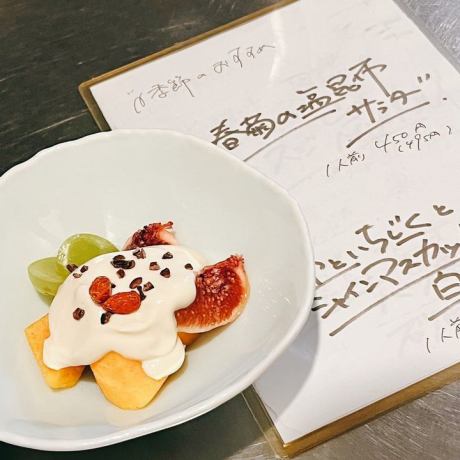 季節のおすすめ
春菊の塩昆布
サラダ
1人前 450円
(495円)
といちじくと
シャインマスカット
白
1人前